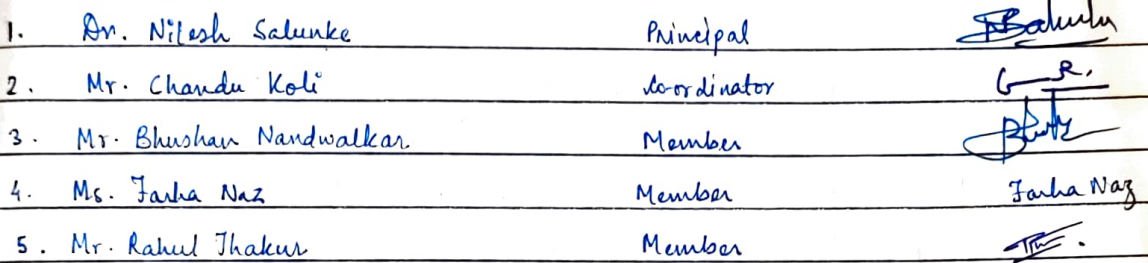 1. Dr. Nilesh Salunke Principal
2. Mr. Chandu Koli Co-ordinator
3. Mr. Bhushan Nandwalkar Member
4. Ms. Farha Naz Member Farha Naz
5. Mr. Rahul Thakur Member